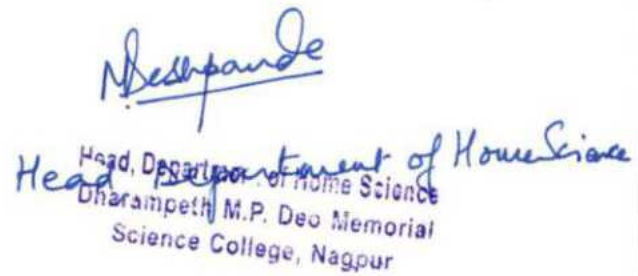 NDeshpande
Head Department of Home Science
Head, Department of Home Science
Dharampeth M.P. Deo Memorial
Science College, Nagpur